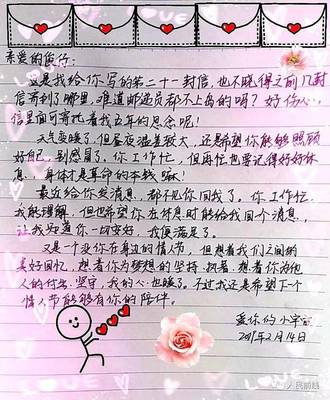 亲爱的俊行:
这是我给你写的第二十一封信,也不晓得之前几封
信寄到了哪里,难道邮递员都不上岛的吗?好伤心,
信里面可寄托着我五年的思念呢!
天气变暖了,但昼夜温差较大,还是希望你能够照顾
好自己,别感冒了。你工作忙,但再忙也要记得好好休
息,身体才是革命的本钱嘛!
最近给你发消息,都不见你回我了。你工作忙,
我能理解,但也希望你在休息时能给我回个消息,
让我知道你一切安好,我便满足了。
又是一个没你在身边的情人节,但想着我们之间的
美好回忆,想着你为梦想的坚持、执着,想着你为他
人的付出、坚守,我的心也暖了。不过我还是希望下一个
情人节能够有你的陪伴。
爱你的小宇
2019年2月14日
LOVE
人民前线